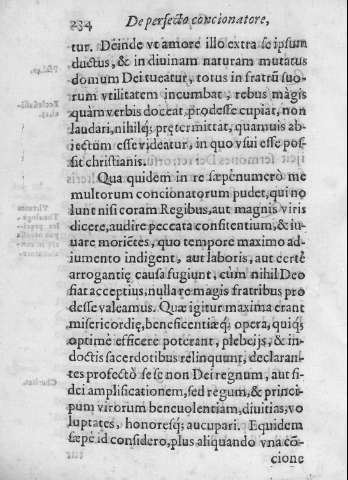 234 De perfecto concionatore,
tur. Deinde vt amore illo extra se ipsum
ductus, & in diuinam naturam mutatus
domum Dei tueatur, totus in fratrũ suo-
rum vtilitatem incumbat, rebus magis
quàm verbis doceat, prodesse cupiat, non
laudari, nihilq́; prętermittat, quamuis ab-
iectum esse videatur, in quo vsui esse pos-
sit christianis.
Qua quidem in re sæpenumerò me
multorum concionatorum pudet, qui no
lunt nisi coram Regibus, aut magnis viris
dicere, audire peccata confitentium, & iu-
uare moriẽtes, quo tempore maximo ad-
iumento indigent, aut laboris, aut certè
arrogantię causa fugiunt, cùm nihil Deo
fiat acceptius, nulla re magis fratribus pro
desse valeamus. Quæ igitur maxima erant
misericordię, beneficentiæq́; opera, quiq́;
optimè efficere poterant, plebeijs, & in-
doctis sacerdotibus relinquunt, declaran-
tes profectò se se non Dei regnum, aut fi-
dei amplificationem, sed regum, & princi-
pum virorum beneuolentiam, diuitias, vo
luptates, honoresq́; aucupari. Equidem
sæpe id considero, plus aliquando vna cõ-
cione